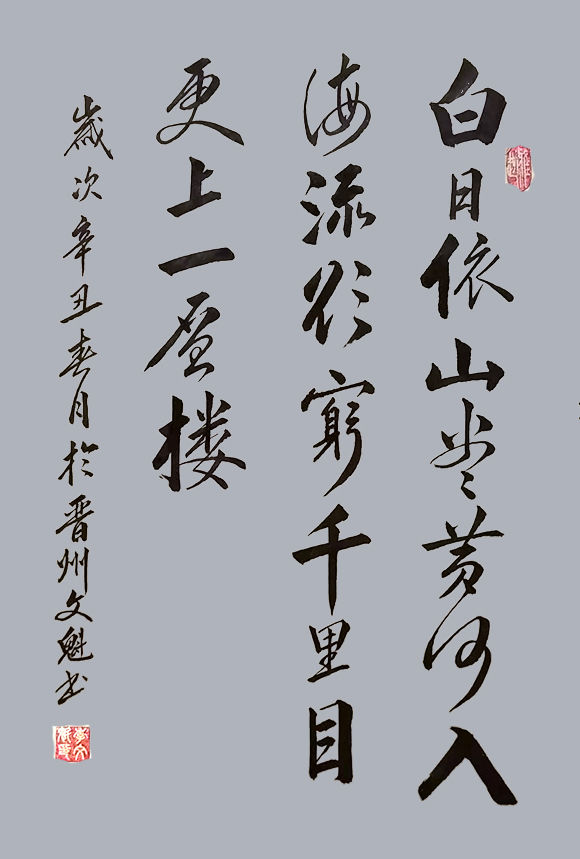 白日依山尽黄河入
海流欲窮千里目
更上一层楼
歲次辛丑春月於晋州文魁书